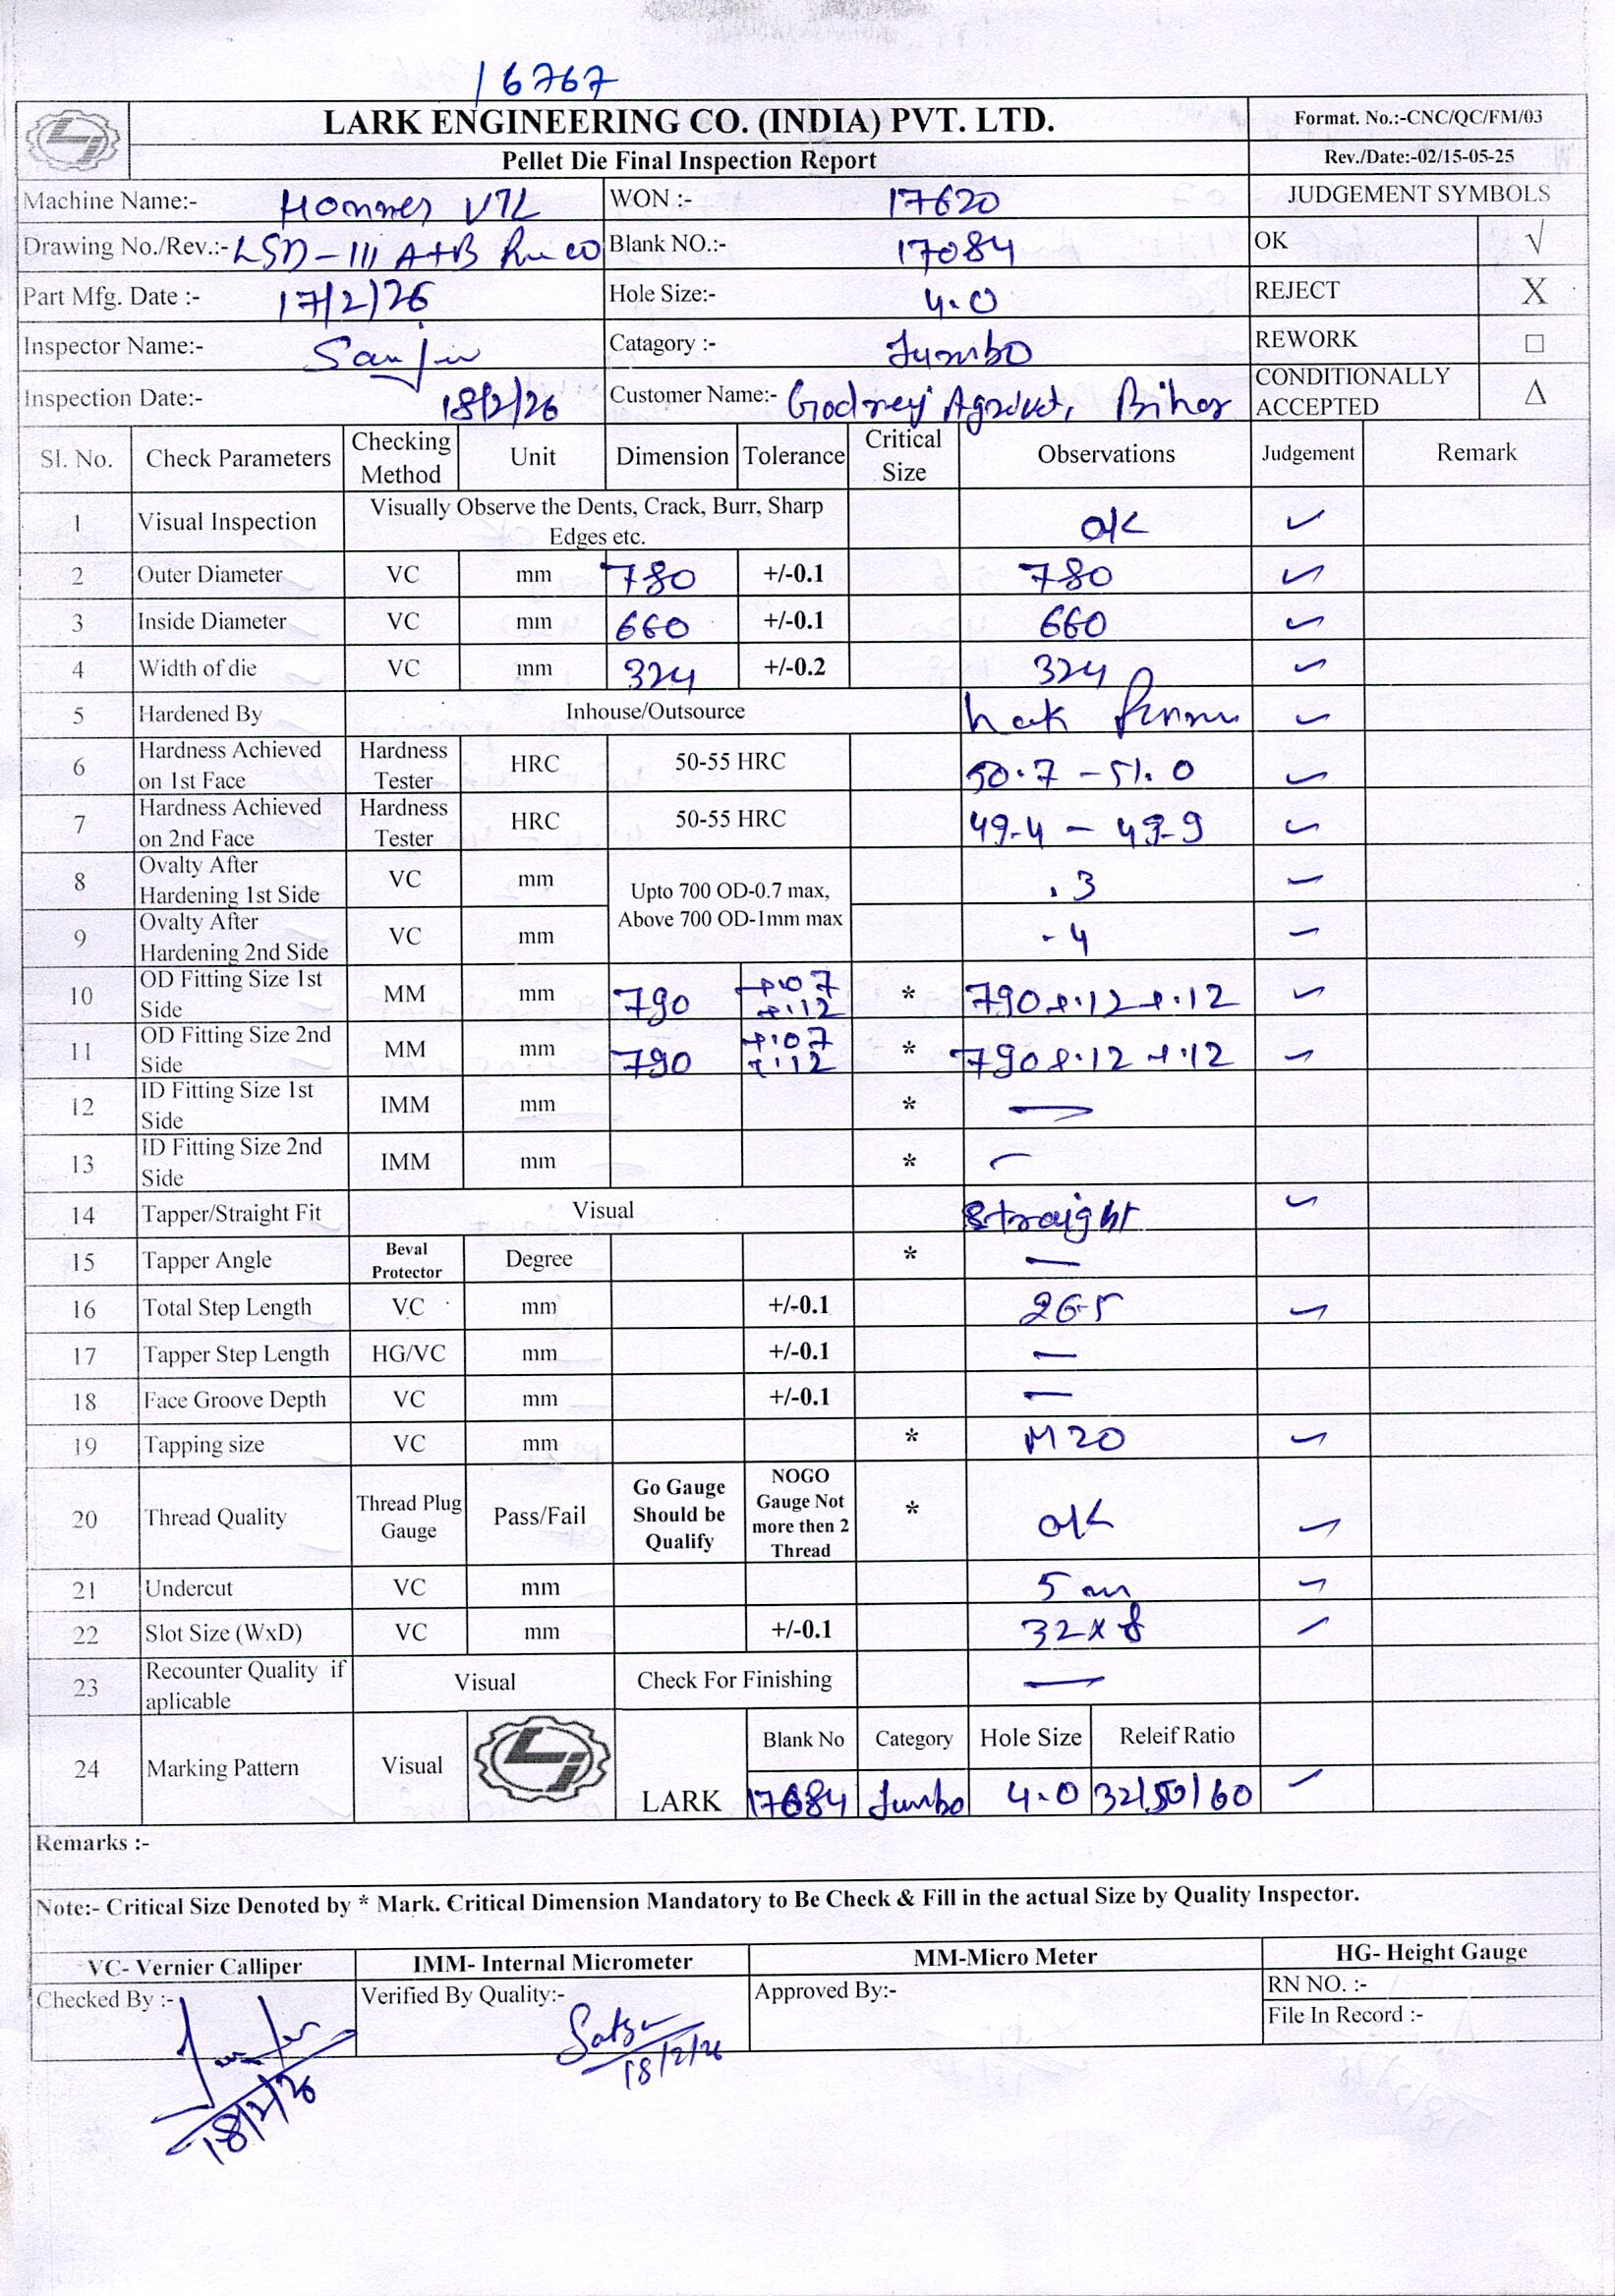 16767
LARK ENGINEERING CO. (INDIA) PVT. LTD.
Format. No.:-CNC/QC/FM/03
Pellet Die Final Inspection Report
Rev./Date:-02/15-05-25
Machine Name:- VTL
WON :- 17620
JUDGEMENT SYMBOLS
Drawing No./Rev.:- LSD-111 A+B
Blank NO.:- 17084
OK √
Part Mfg. Date :- 17/2/26
Hole Size:- 4.0
REJECT X
Inspector Name:-
Catagory :- Jumbo
REWORK □
Inspection Date:- 18/2/26
Customer Name:- Godrej Agrovet, Bihar
CONDITIONALLY ACCEPTED Δ
Sl. No. Check Parameters Checking Method Unit Dimension Tolerance Critical Size Observations Judgement Remark
1 Visual Inspection Visually Observe the Dents, Crack, Burr, Sharp Edges etc. ok ✓
2 Outer Diameter VC mm 780 +/-0.1 780 ✓
3 Inside Diameter VC mm 660 +/-0.1 660 ✓
4 Width of die VC mm 324 +/-0.2 324 ✓
5 Hardened By Inhouse/Outsource ✓
6 Hardness Achieved on 1st Face Hardness Tester HRC 50-55 HRC 50.7 - 51.0 ✓
7 Hardness Achieved on 2nd Face Hardness Tester HRC 50-55 HRC 49.4 - 49.9 ✓
8 Ovalty After Hardening 1st Side VC mm Upto 700 OD-0.7 max, Above 700 OD-1mm max .3 ✓
9 Ovalty After Hardening 2nd Side VC mm .4 ✓
10 OD Fitting Size 1st Side MM mm 790 +.07 +.12 * 790 +.12 +.12 ✓
11 OD Fitting Size 2nd Side MM mm 790 +.07 +.12 * 790 +.12 +.12 ✓
12 ID Fitting Size 1st Side IMM mm * —
13 ID Fitting Size 2nd Side IMM mm * —
14 Tapper/Straight Fit Visual Straight ✓
15 Tapper Angle Beval Protector Degree * —
16 Total Step Length VC mm +/-0.1 26.5 ✓
17 Tapper Step Length HG/VC mm +/-0.1 —
18 Face Groove Depth VC mm +/-0.1 —
19 Tapping size VC mm * M20 ✓
20 Thread Quality Thread Plug Gauge Pass/Fail Go Gauge Should be Qualify NOGO Gauge Not more then 2 Thread * ok ✓
21 Undercut VC mm 5 mm ✓
22 Slot Size (WxD) VC mm +/-0.1 32x8 ✓
23 Recounter Quality if aplicable Visual Check For Finishing —
24 Marking Pattern Visual LARK Blank No Category Hole Size Releif Ratio
17084 Jumbo 4.0 32/50/60 ✓
Remarks :-
Note:- Critical Size Denoted by * Mark. Critical Dimension Mandatory to Be Check & Fill in the actual Size by Quality Inspector.
VC- Vernier Calliper IMM- Internal Micrometer MM-Micro Meter HG- Height Gauge
Checked By :- Verified By Quality:- Approved By:- RN NO. :-
File In Record :-
18/2/26
18/2/26